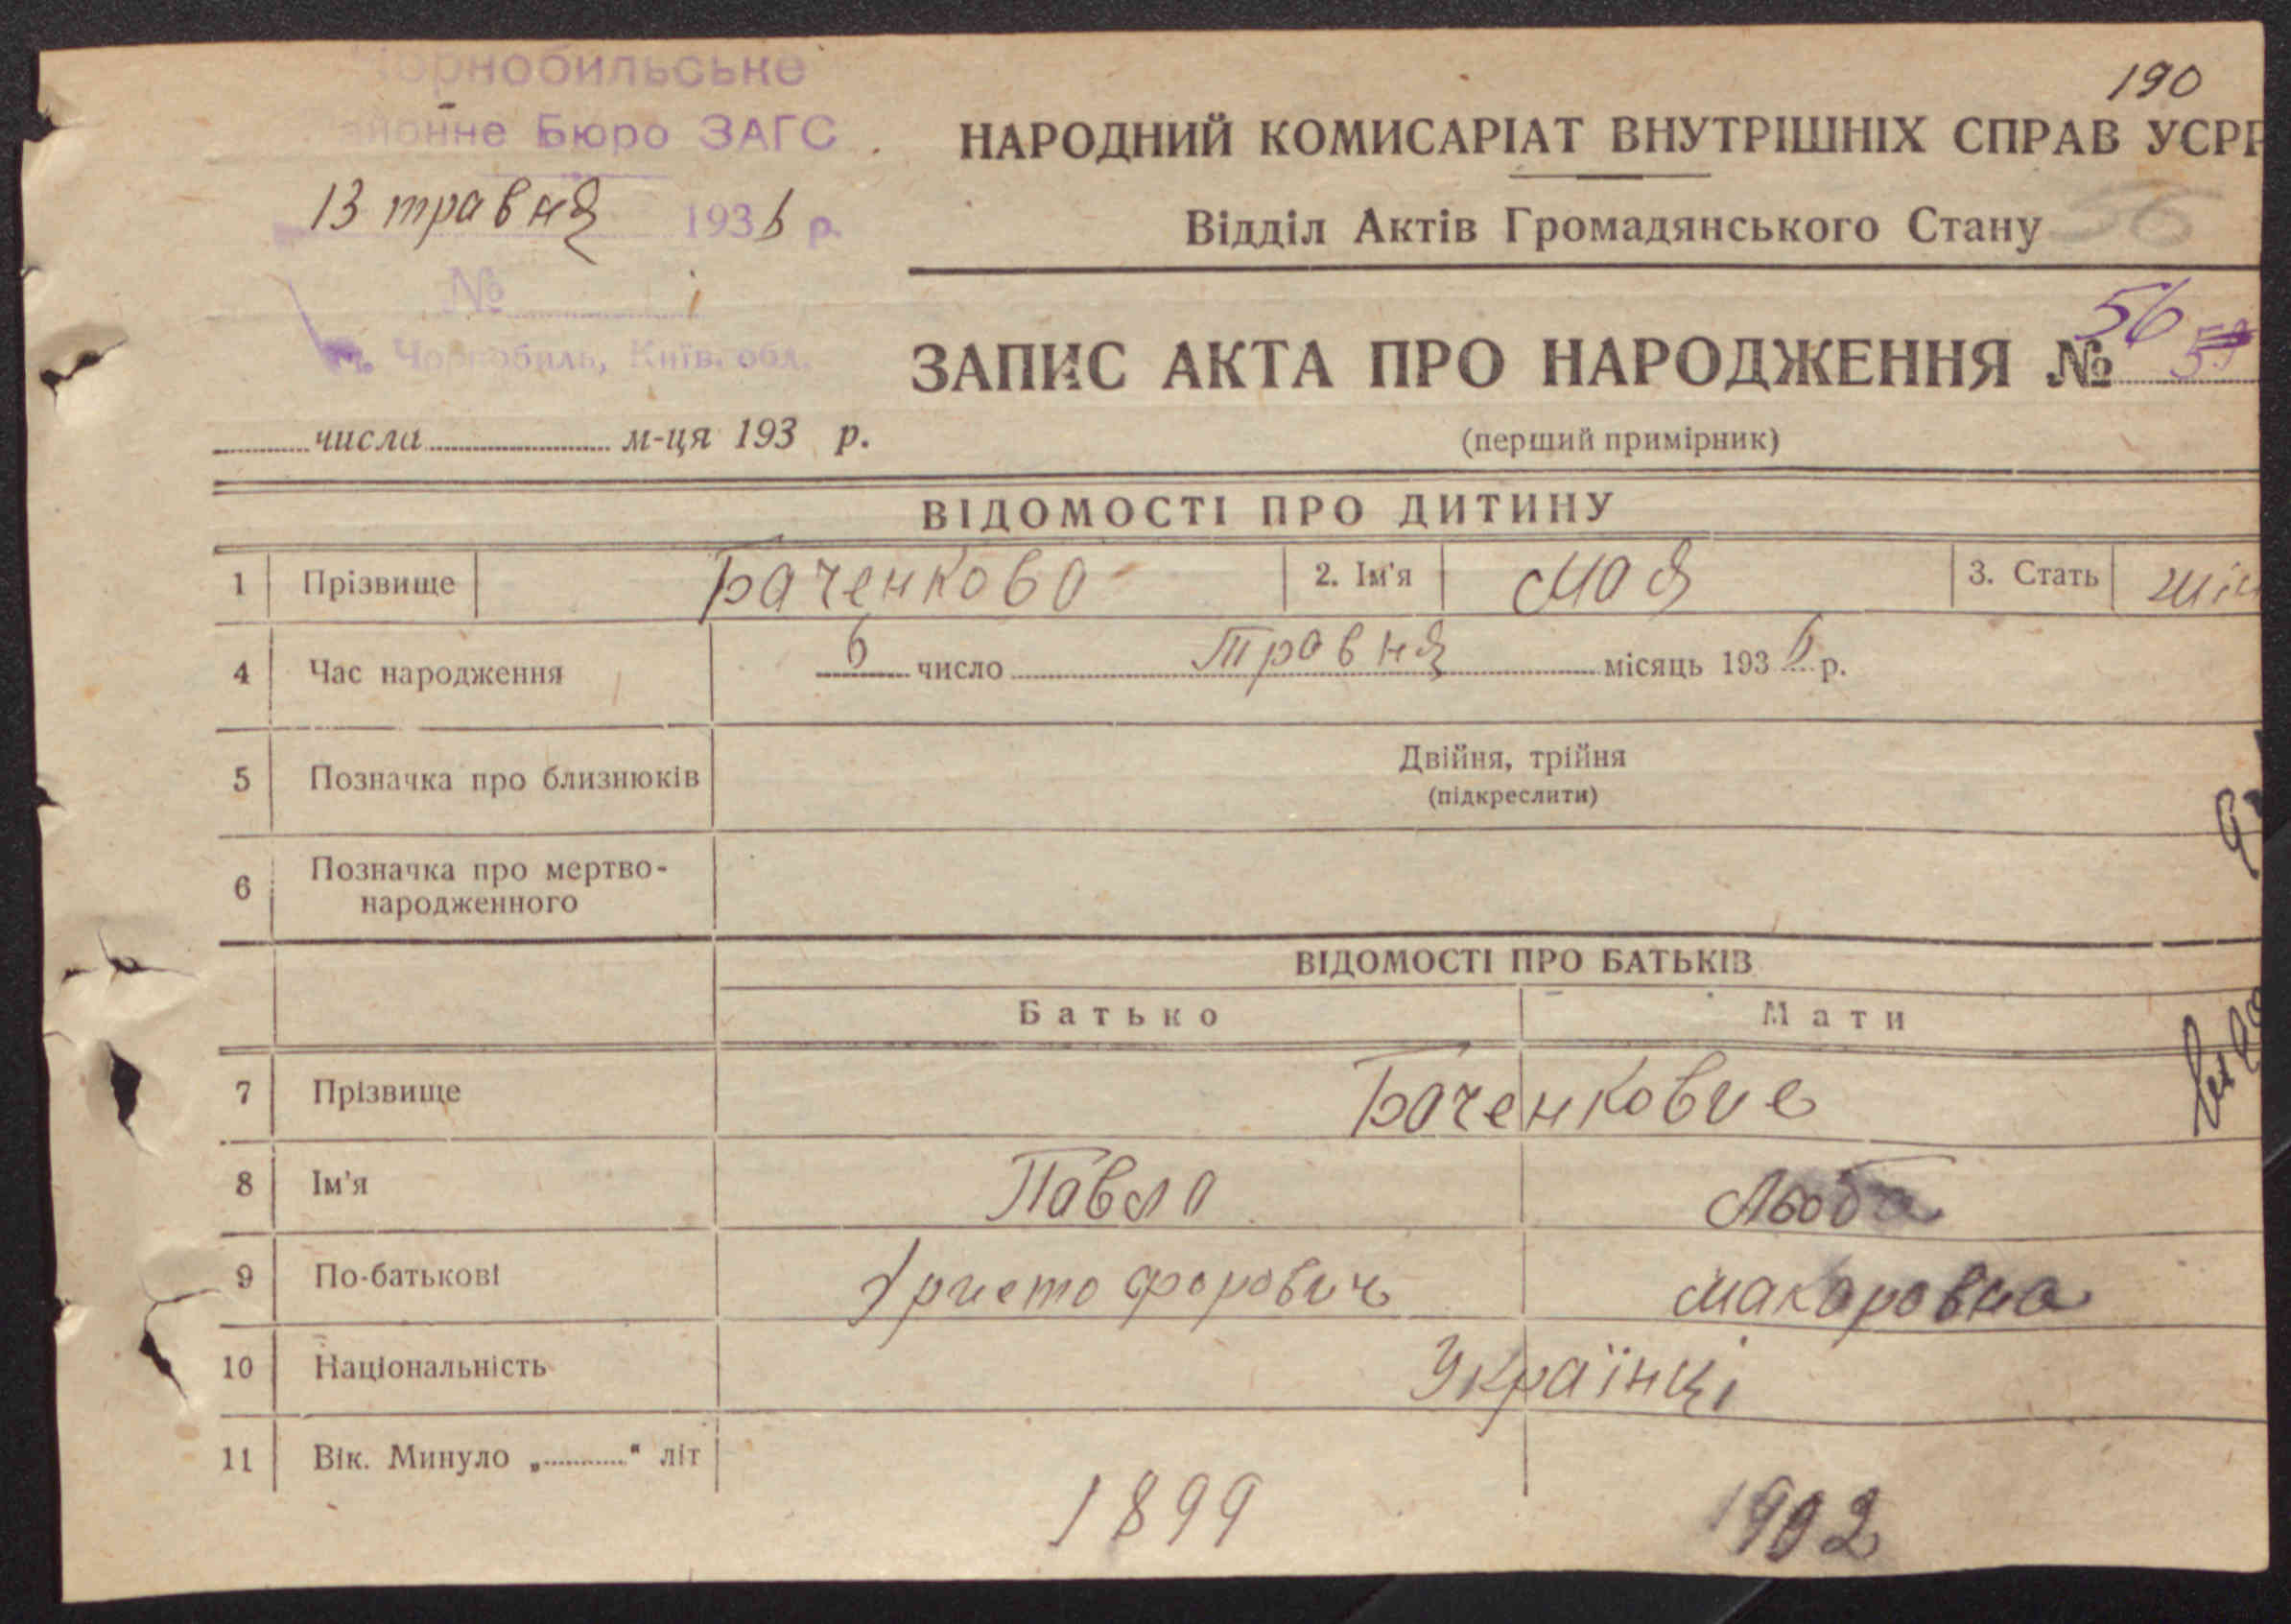 Чорнобильське
Районне Бюро ЗАГС
13 травня 1936 р.
№
м. Чорнобиль, Київ. обл.
числа м-ця 193 р.
190
НАРОДНИЙ КОМИСАРІАТ ВНУТРІШНІХ СПРАВ УСРР
Відділ Актів Громадянського Стану 56
ЗАПИС АКТА ПРО НАРОДЖЕННЯ № 56
(перший примірник)
ВІДОМОСТІ ПРО ДИТИНУ
1 Прізвище Баченкова 2. Ім'я Мая 3. Стать жін
4 Час народження 6 число Травня місяць 1936 р.
5 Позначка про близнюків Двійня, трійня
(підкреслити)
6 Позначка про мертво-
народженного
ВІДОМОСТІ ПРО БАТЬКІВ
Батько Мати
7 Прізвище Баченковие
8 Ім'я Павло Люба
9 По-батькові Христофорович Макаровна
10 Національність Українці
11 Вік. Минуло „ “ літ
1899 1902